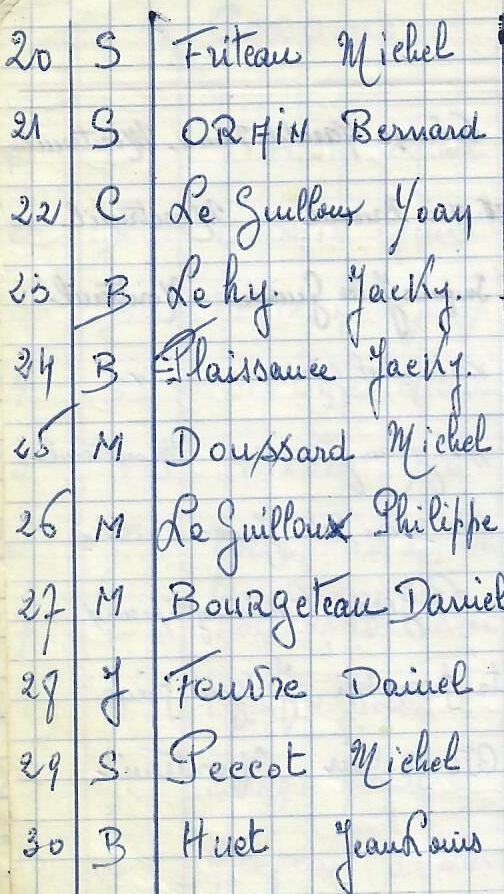 20 S Friteau Michel
21 S ORAIN Bernard
22 C Le Guilloux Yoan
23 B Le hy. Jacky.
24 B Plaissance Jacky.
25 M Doussard Michel
26 M Le Guilloux Philippe
27 M Bourgeteau Daniel
28 J Feuvre Daniel
29 S Peccot Michel
30 B Huet Jean Louis